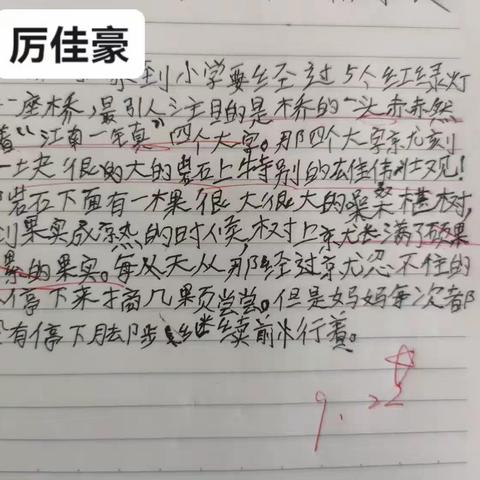 厉佳豪
家到小学要经过5个红绿灯
一座桥,最引人注目的是桥的一头赤赤然
着“江南一镇”四个大字。那四个大字就刻
一块很的大的岩石上特别的雄伟壮观!
岩石下面有一棵很大很大的桑椹树,
到果实成熟的时候,树上就长满了硕果
累的果实。每次天从那经过就忍不住的
停下来摘几颗尝尝。但是妈妈每次都
没有停下脚步继续前行着。
9.22